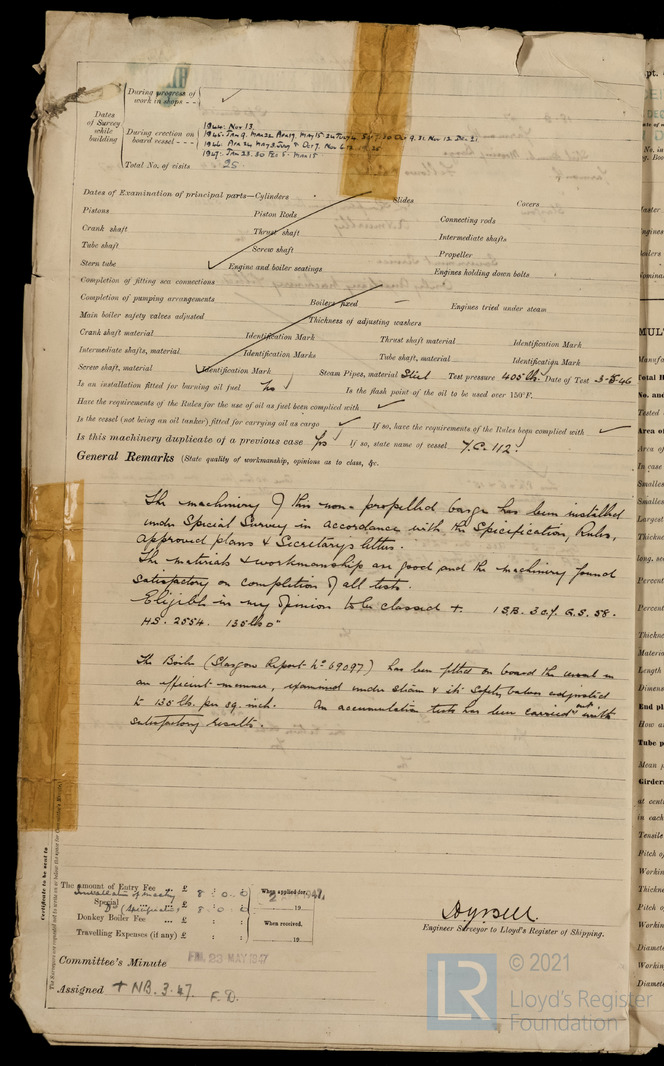 During progress of
work in shops - -
Dates
of Survey
while
building
During erection on
board vessel - - -
1944: Nov 13
1945: Jan 9. Mar 22. Apr 19. May 15. 30 Oct 9. 31. Nov 12. Dec. 21
1946: Apr 24 May 3. Oct 7. Nov 6.
1947: Jan 23. 30 Feb 5. Mar 15
Total No. of visits 25
Dates of Examination of principal parts—Cylinders Slides Covers
Pistons Piston Rods Connecting rods
Crank shaft Thrust shaft Intermediate shafts
Tube shaft Screw shaft Propeller
Stern tube Engine and boiler seatings Engines holding down bolts
Completion of fitting sea connections
Completion of pumping arrangements Boilers fixed Engines tried under steam
Main boiler safety valves adjusted Thickness of adjusting washers
Crank shaft material Identification Mark Thrust shaft material Identification Mark
Intermediate shafts, material Identification Marks Tube shaft, material Identification Mark
Screw shaft, material Identification Mark Steam Pipes, material Steel Test pressure 405 lbs. Date of Test
Is an installation fitted for burning oil fuel No Is the flash point of the oil to be used over 150°F.
Have the requirements of the Rules for the use of oil as fuel been complied with
Is the vessel (not being an oil tanker) fitted for carrying oil as cargo If so, have the requirements of the Rules been complied with
Is this machinery duplicate of a previous case Yes If so, state name of vessel Y.C. 112.
General Remarks (State quality of workmanship, opinions as to class, &c.
The machinery of this non-propelled barge has been installed
under Special Survey in accordance with the Specification, Rules,
approved plans & Secretary's letters.
The materials & workmanship are good and the machinery found
satisfactory on completion of all tests.
Eligible in my opinion to be classed + 1 S.B. 3 c.f. G.S. 58.
H.S. 2554. 135 lbs □"
The Boiler (Glasgow Report No 69097) has been fitted on board the vessel in
an efficient manner, examined under steam & its safety valves adjusted
to 135 lbs. per sq. inch. An accumulation tests has been carried out with
satisfactory results.
Certificate to be sent to
The amount of Entry Fee ... £ : : When applied for,
Installation of machy 8 : 0 : 0
Special ... £ 19
(Specification) 8 : 0 : 0
Donkey Boiler Fee ... £ : : When received,
Travelling Expenses (if any) £ : : 19
Engineer Surveyor to Lloyd's Register of Shipping.
Committee's Minute FRI. 23 MAY 1947
Assigned + NB. 3.47. F.D.
© 2021
Lloyd's Register
Foundation
LR